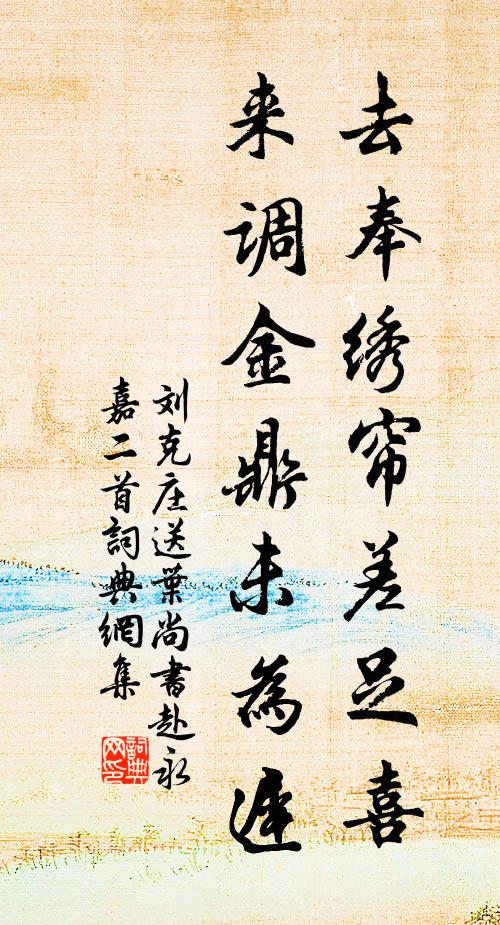 去奉绣帘差足喜
来调金鼎未為遲
刘克庄送葉尚書赴永
嘉二首詞典網集
詞典
网印